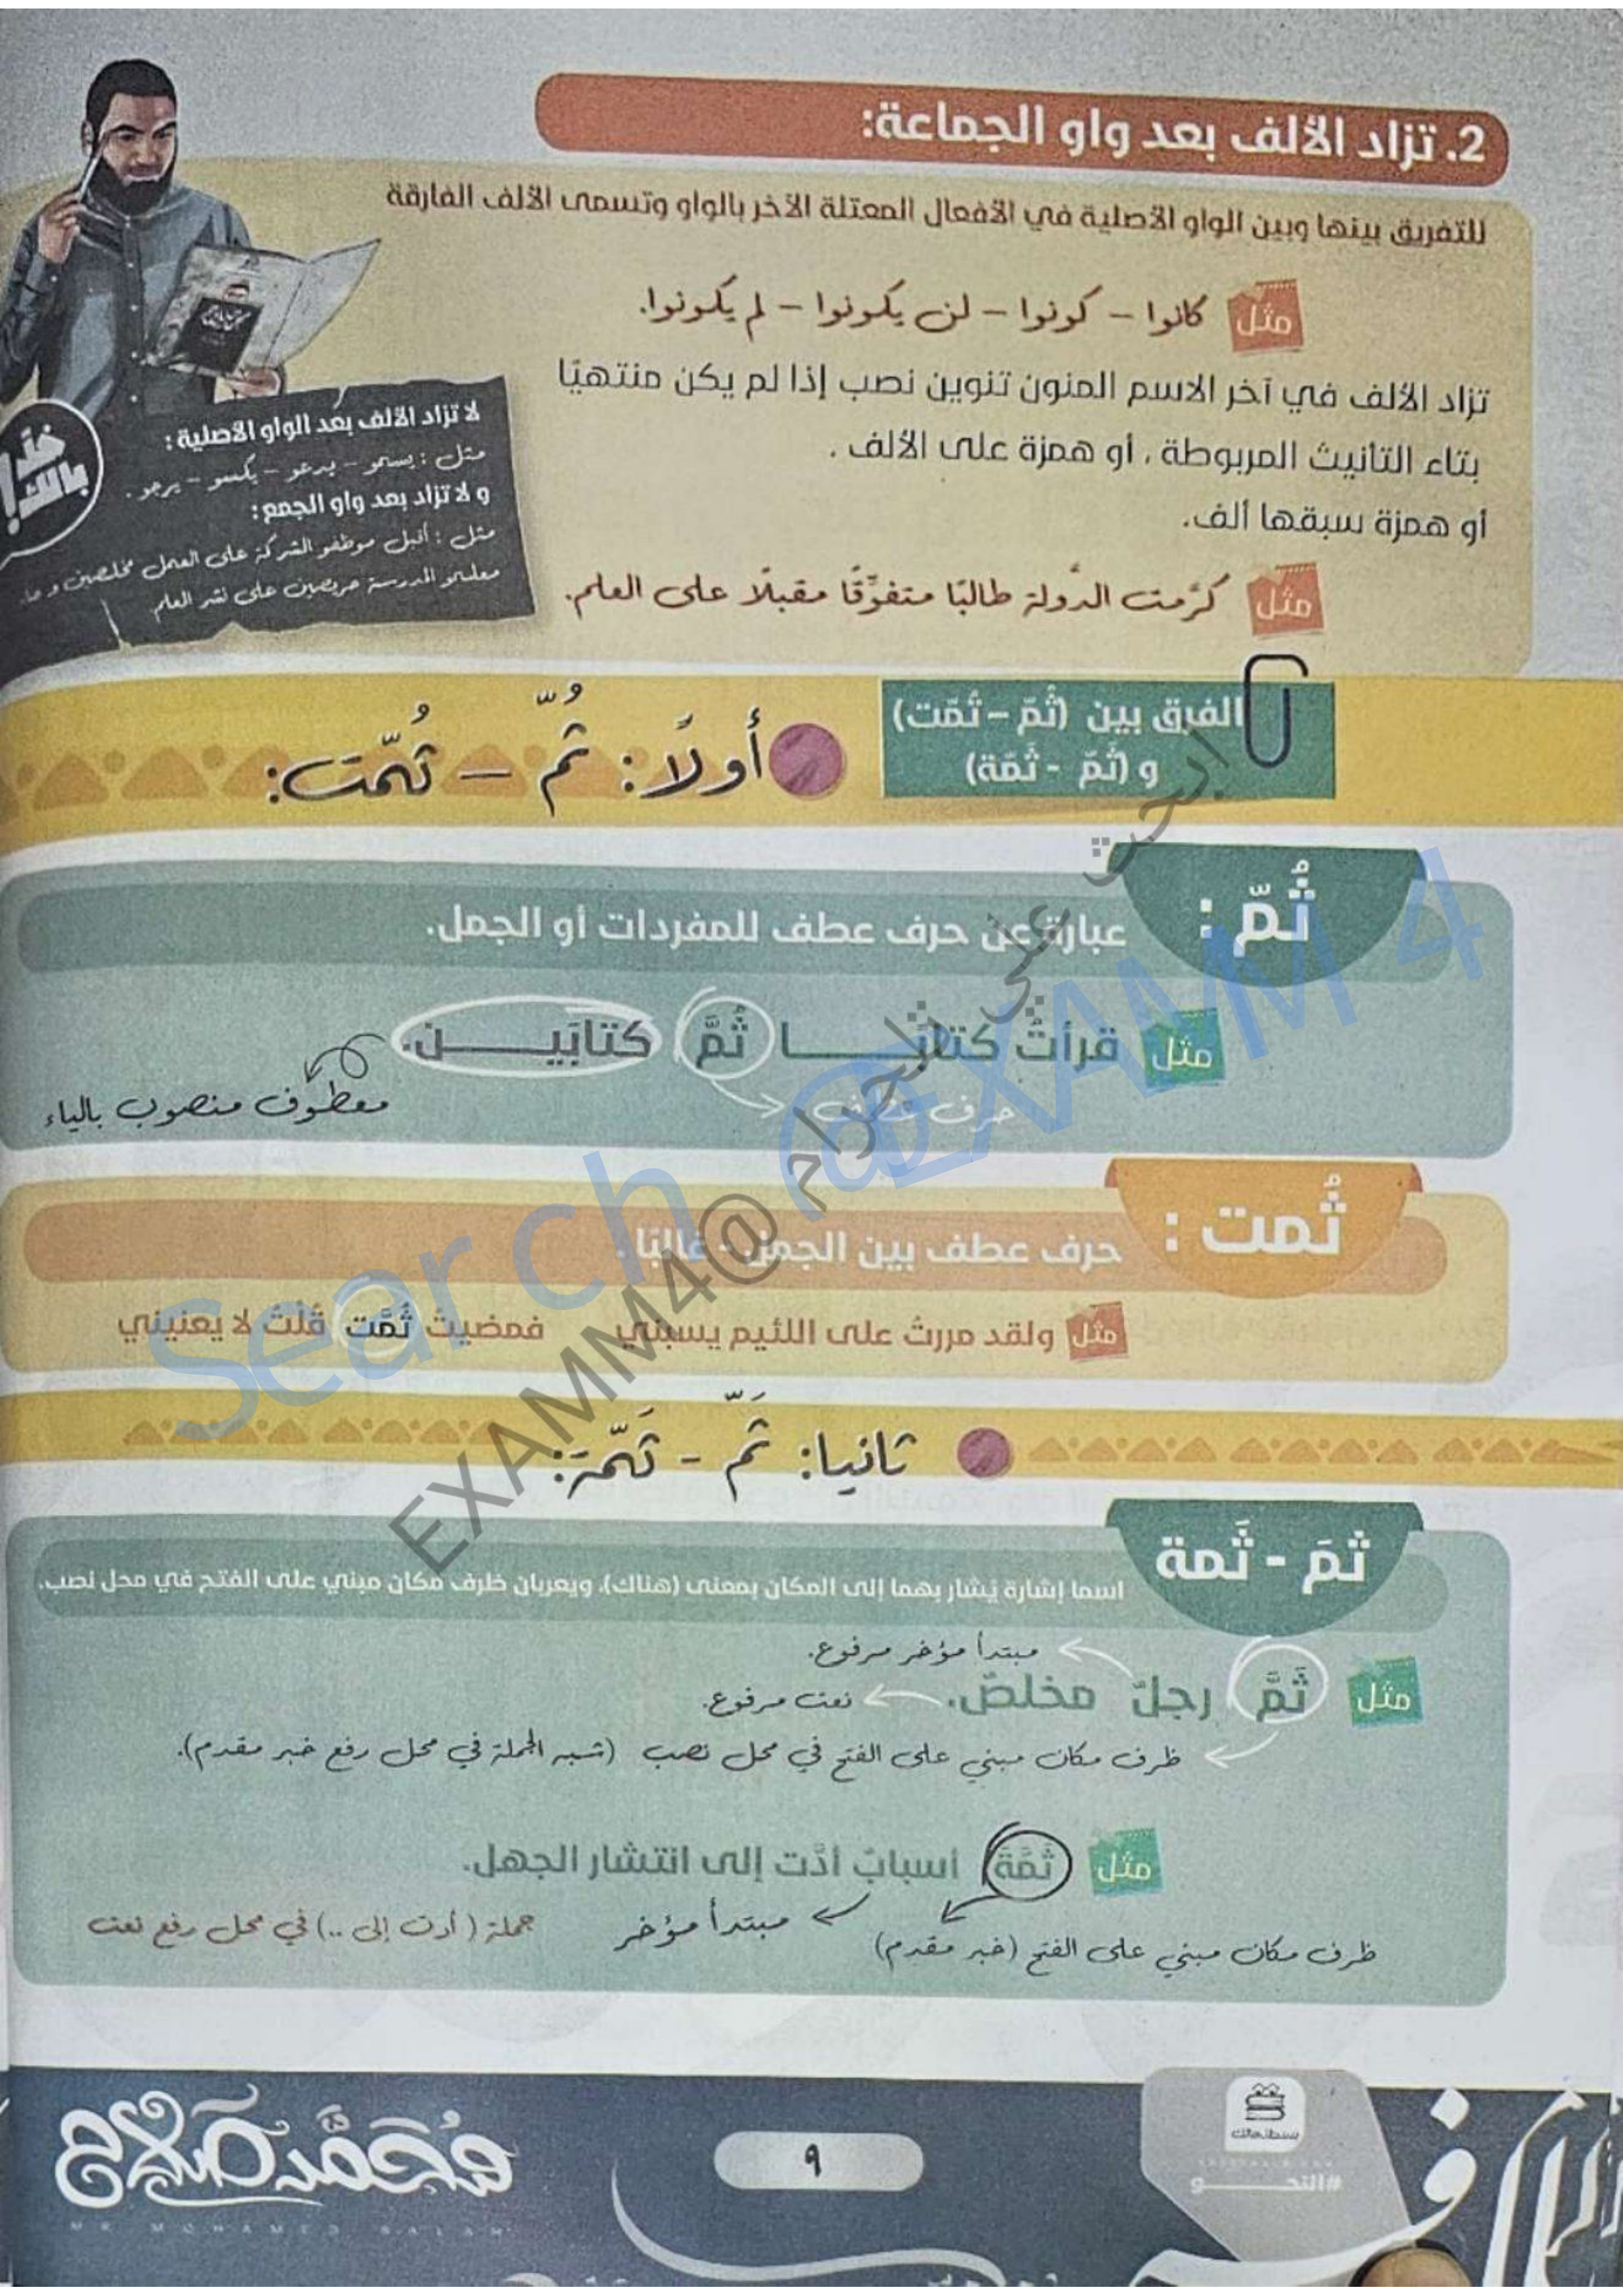 2. تزاد الألف بعد واو الجماعة:
للتفريق بينها وبين الواو الأصلية في الأفعال المعتلة الآخر بالواو وتسمى الألف الفارقة
مثل كانوا – كونوا – لن يكونوا – لم يكونوا.
تزاد الألف في آخر الاسم المنون تنوين نصب إذا لم يكن منتهيًا
بتاء التأنيث المربوطة ، أو همزة على الألف .
أو همزة سبقها ألف.
مثل كرَّمت الدَّولة طالبًا متفوِّقًا مقبلًا على العلم.
خد بالك!
لا تزاد الألف بعد الواو الأصلية :
مثل : يسمو – يدعو – يكسو – يرجو .
و لا تزاد بعد واو الجمع :
مثل : أقبل موظفو الشركة على العمل مخلصين و
معلمو المدرسة حريصين على نشر العلم
الفرق بين (ثُمّ – ثُمّت)
و (ثَمّ - ثَمّة)
أولًا: ثُمّ – ثُمّت:
ثُمّ :
عبارة عن حرف عطف للمفردات أو الجمل.
مثل قرأتُ كتابًـــــا ثُمَّ كتابَيـــــن.
حرف عطف
معطوف منصوب بالياء
ثُمت :
حرف عطف بين الجمل - غالبًا .
مثل ولقد مررتُ على اللئيم يسبني فمضيتُ ثُمَّت قُلتُ لا يعنيني
ثانيا: ثَمّ - ثَمّة:
ثمَ - ثَمة
اسما إشارة يُشار بهما إلى المكان بمعنى (هناك)، ويعربان ظرف مكان مبني على الفتح في محل نصب.
مبتدأ مؤخر مرفوع.
مثل ثَمَّ رجلٌ مخلصٌ.
نعت مرفوع.
ظرف مكان مبني على الفتح في محل نصب (شبه الجملة في محل رفع خبر مقدم).
مثل ثَمَّةَ أسبابٌ أدَّت إلى انتشار الجهل.
ظرف مكان مبني على الفتح (خبر مقدم)
مبتدأ مؤخر
جملة ( أدت إلى ..) في محل رفع نعت
ابحث علي تليجرام @EXAMM4
Search @EXAMM 4
محمد صلاح
MR MOHAMED SALAH
٩
#النحـــو